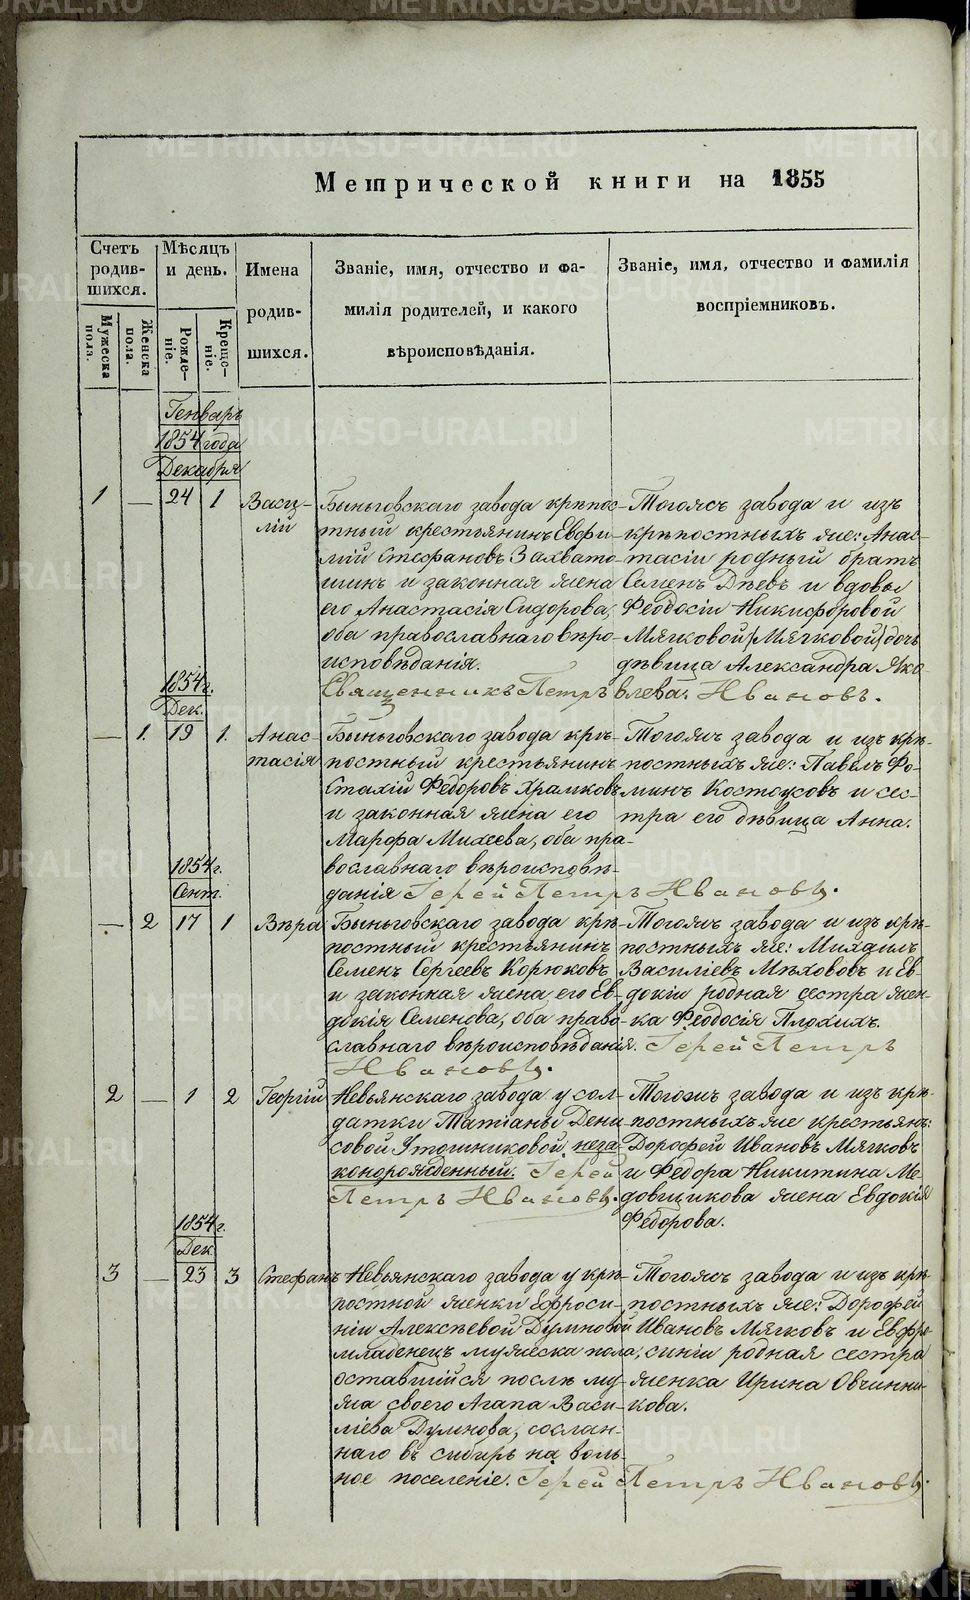 Метрической книги на 1855
Счетъ родив-шихся.
Мужеска пола.
Женска пола.
Мѣсяцъ и день.
Рожде-ніе.
Креще-ніе.
Имена родив-шихся.
Званіе, имя, отчество и фа-
милія родителей, и какого
вѣроисповѣданія.
Званіе, имя, отчество и фамилія
воспріемниковъ.
Генварь
1854 года
Декабря
1 — 24 1 Васи-
лій
Быньговскаго завода крѣпос-
тный крестьянинъ Евфи-
мій Стефановъ Захвато-
шинъ и законная жена
его Анастасія Сидорова,
оба православнаго вѣро-
исповѣданія.
Священникъ Петръ Ивановъ.
Тогожъ завода и изъ
крѣпостныхъ же: Анас-
тасіи родный братъ
Семенъ Дѣевъ и вдовы
Феодосіи Никифоровой
Мягковой (Мягковой) дочь
дѣвица Александра Яко-
влева.
1854 г.
Дек.
— 1. 19 1. Анас-
тасія
Быньговскаго завода крѣ-
постный крестьянинъ
Стахій Федоровъ Храмковъ
и законная жена его
Марфа Михеева, оба пра-
вославнаго вѣроисповѣ-
данія Іерей Петръ Ивановъ.
Тогожъ завода и изъ крѣ-
постныхъ же: Павелъ Фо-
минъ Костоусовъ и сес-
тра его дѣвица Анна.
1854 г.
Сент.
— 2 17 1 Вѣра
Быньговскаго завода крѣ-
постный крестьянинъ
Семенъ Сергеевъ Корюковъ
и законная жена его Ев-
докія Семенова, оба право-
славнаго вѣроисповѣданія. Іерей Петръ
Ивановъ.
Тогожъ завода и изъ крѣ-
постныхъ же: Михаилъ
Василіевъ Мѣхововъ и Ев-
докіи родная сестра жен-
ка Феодосія Плохихъ.
2 — 1 2 Георгій
Невьянскаго завода у сол-
датки Татіаны Дени-
совой Утошниковой неза-
конорожденный. Іерей
Петръ Ивановъ.
Тогожъ завода и изъ крѣ-
постныхъ же крестьянъ:
Дорофей Ивановъ Мягковъ
и Федора Никитина Ме-
довщикова жена Евдокія
Федорова.
1854 г.
Дек.
3 — 23 3 Стефанъ
Невьянскаго завода у крѣ-
постной женки Ефроси-
ніи Алексѣевой Думновой
младенецъ мужеска пола,
оставшійся послѣ му-
жа своего Агапа Васи-
ліева Думнова, сослан-
наго въ сибирь на воль-
ное поселеніе. Іерей Петръ Ивановъ.
Тогожъ завода и изъ крѣ-
постныхъ же: Дорофей
Ивановъ Мягковъ и Евфро-
синіи родная сестра
женка Ирина Овчинни-
кова.
METRIKI.GASO-URAL.RU